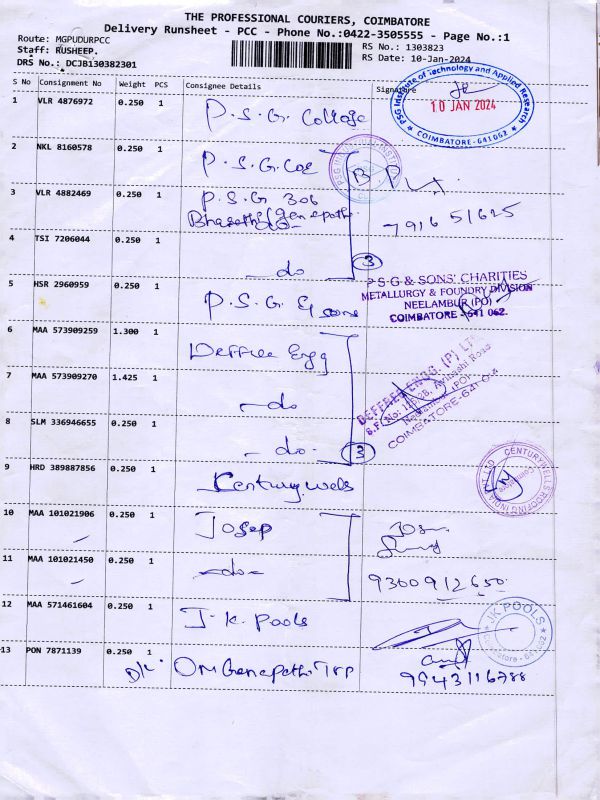 THE PROFESSIONAL COURIERS, COIMBATORE
Delivery Runsheet - PCC - Phone No.:0422-3505555 - Page No.:1
Route: MGPUDURPCC
RS No.: 1303823
Staff: RUSHEEP.
RS Date: 10-Jan-2024
DRS No.: DCJB130382301
S No Consignment No Weight PCS Consignee Details Signature
PSG Institute of Technology and Applied Research
10 JAN 2024
COIMBATORE - 641 062
1 VLR 4876972 0.250 1 P.S.G. College
2 NKL 8160578 0.250 1 P.S.G. Coe
3 VLR 4882469 0.250 1 P.S.G 306
7916 51625
4 TSI 7206044 0.250 1 - do
3
5 HSR 2960959 0.250 1 P.S.G. & sons
P·S·G & SONS' CHARITIES
METALLURGY & FOUNDRY DIVISION
NEELAMBUR (PO)
COIMBATORE - 641 062.
6 MAA 573909259 1.300 1 Deffree Engg
7 MAA 573909270 1.425 1 - do
DEFFREE ENGG. (P) LTD
Avinashi Road
Neelambur (PO)
COIMBATORE-641
8 SLM 336946655 0.250 1 - do.
3
9 HRD 389887856 0.250 1 Century wels
CENTURYWELLS ROOFING INDIA PVT LTD
10 MAA 101021906 0.250 1 Josep
11 MAA 101021450 0.250 1 - do -
9300912650
12 MAA 571461604 0.250 1 J. K. Pools
JK POOLS
13 PON 7871139 0.250 1 Om Ganapathi
9943116788